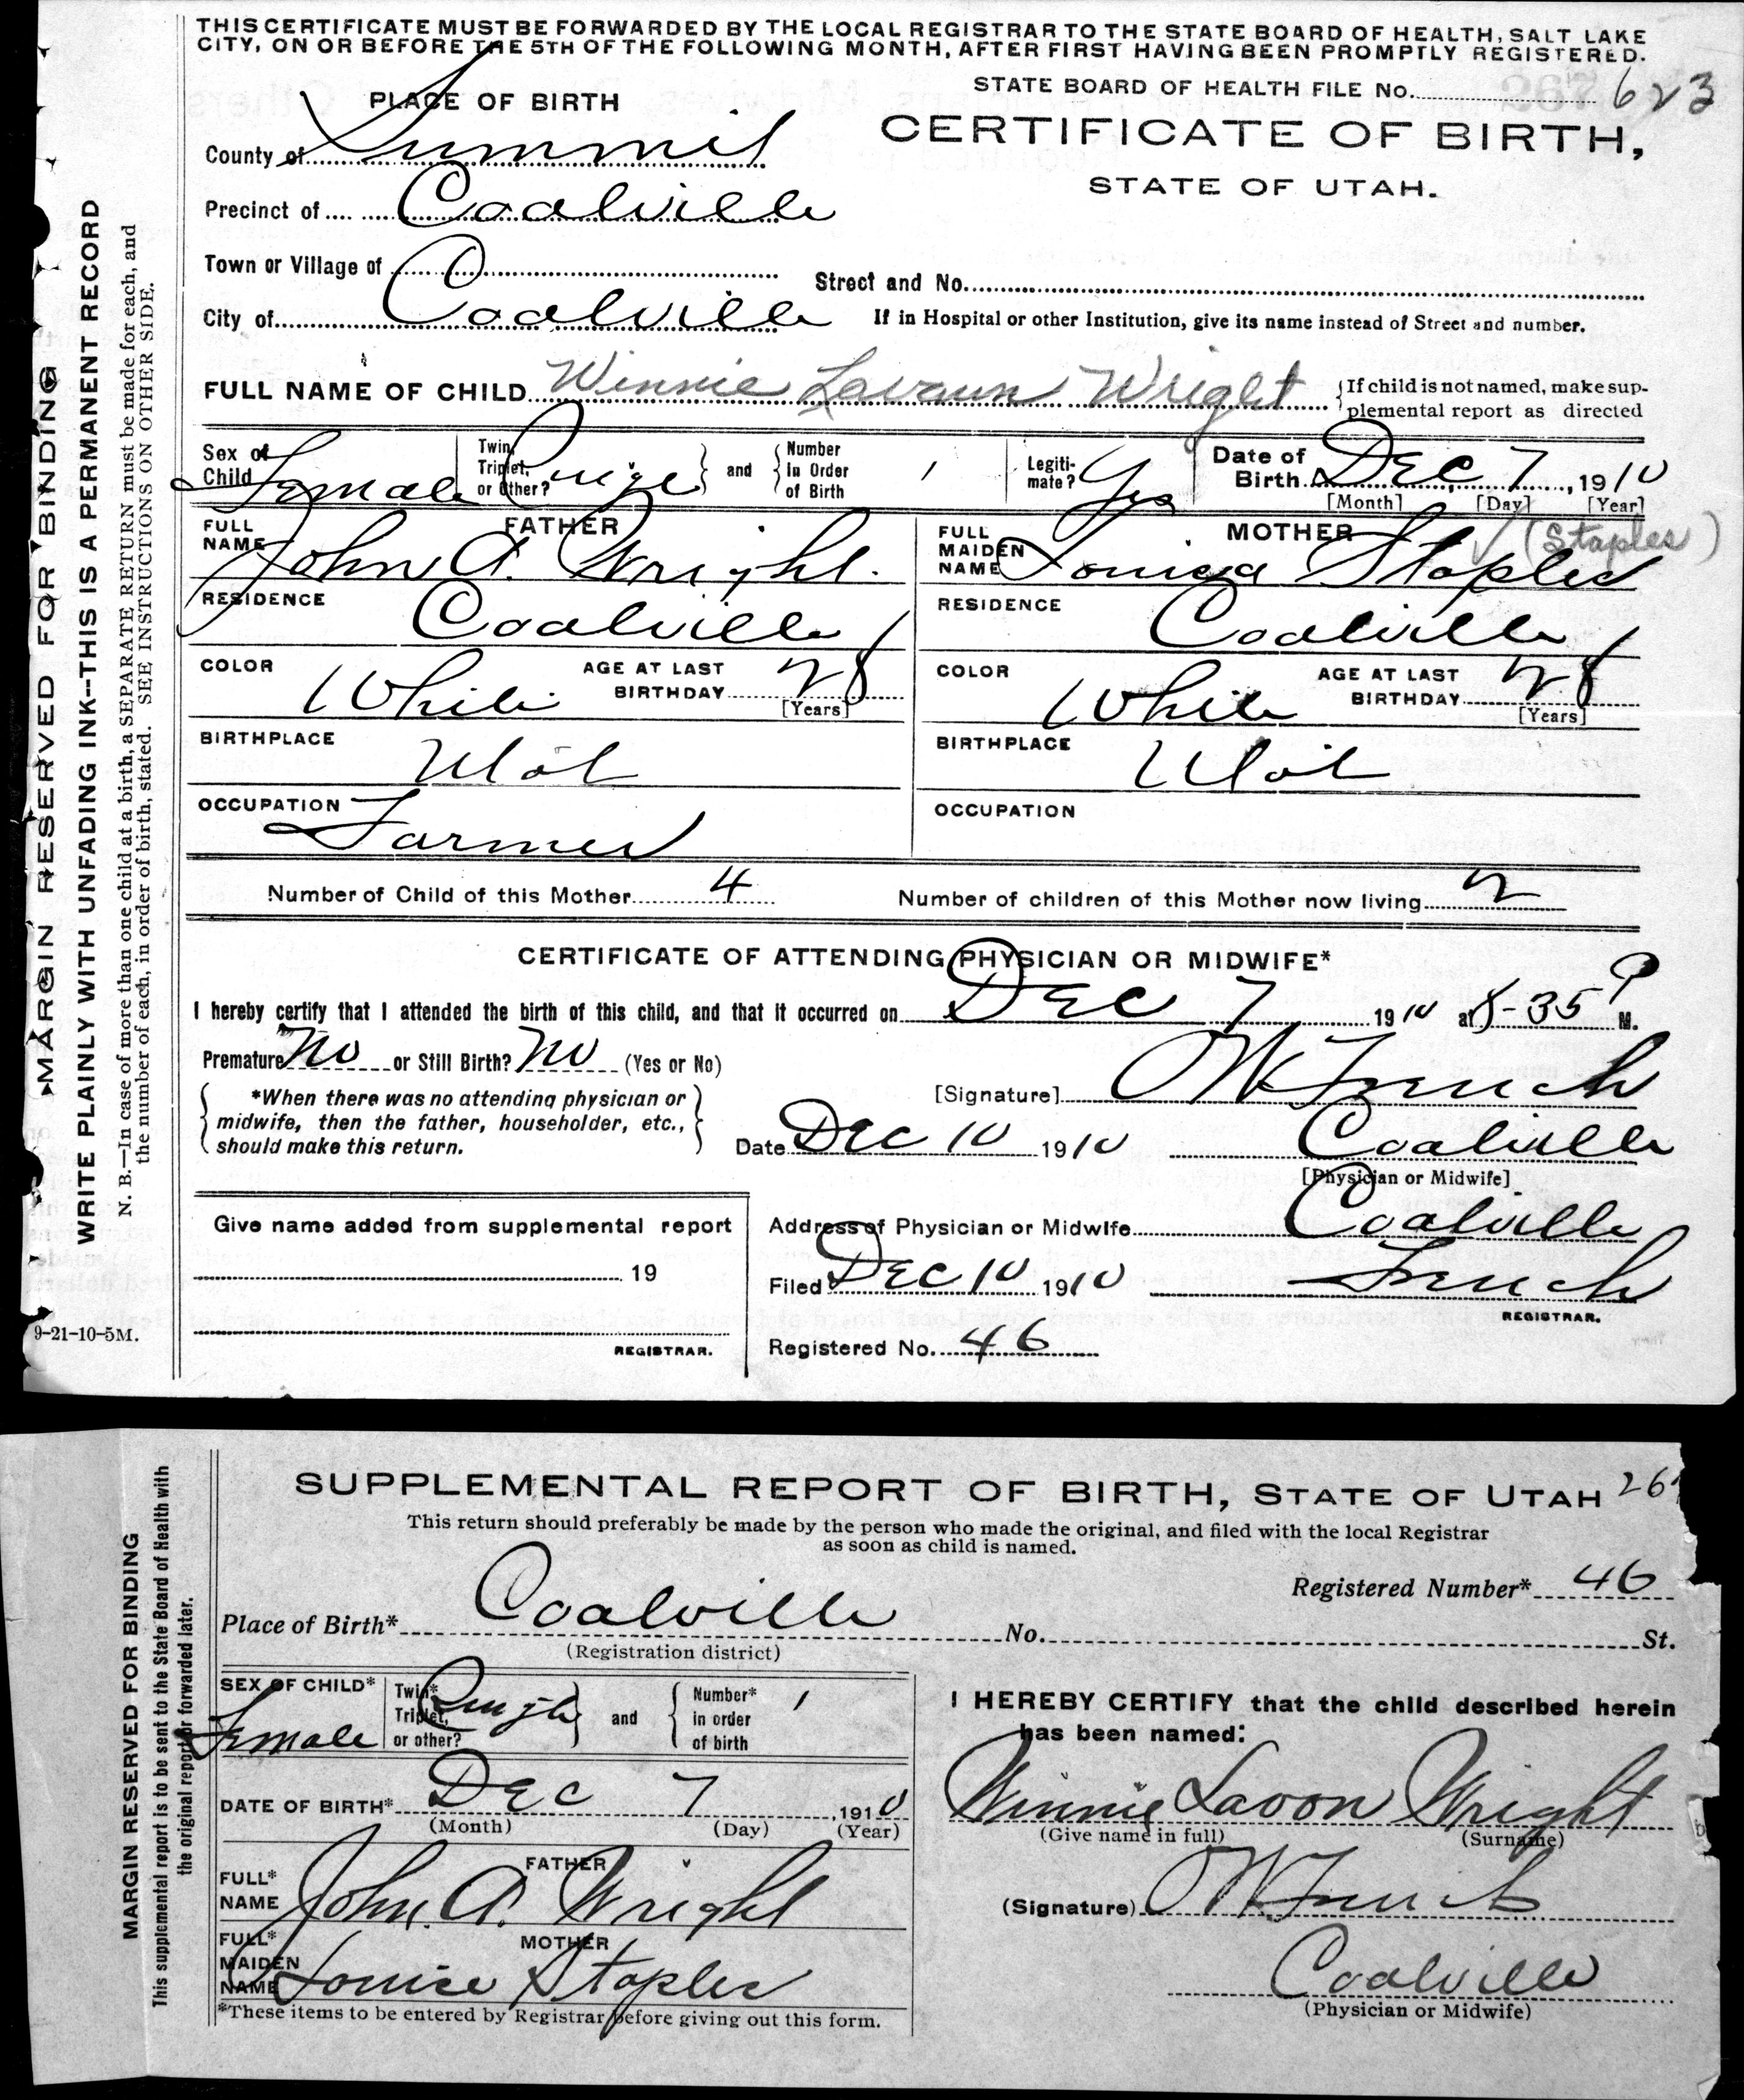 THIS CERTIFICATE MUST BE FORWARDED BY THE LOCAL REGISTRAR TO THE STATE BOARD OF HEALTH, SALT LAKE
CITY, ON OR BEFORE THE 5TH OF THE FOLLOWING MONTH, AFTER FIRST HAVING BEEN PROMPTLY REGISTERED.
STATE BOARD OF HEALTH FILE No. 623
PLACE OF BIRTH
CERTIFICATE OF BIRTH,
STATE OF UTAH.
County of Summit
Precinct of Coalville
Town or Village of
Street and No.
City of Coalville
If in Hospital or other Institution, give its name instead of Street and number.
FULL NAME OF CHILD Winnie Lavaun Wright
{If child is not named, make sup-
plemental report as directed
Sex of Child Female
Twin, Triplet, or other? Single } and { Number in Order of Birth 1
Legiti-mate? Yes
Date of Birth Dec 7, 1910
[Month] [Day] [Year]
FATHER
FULL NAME John A. Wright.
RESIDENCE Coalville
COLOR White AGE AT LAST BIRTHDAY 28 [Years]
BIRTHPLACE Utah
OCCUPATION Farmer
MOTHER (Staples)
FULL MAIDEN NAME Louisa Staples
RESIDENCE Coalville
COLOR White AGE AT LAST BIRTHDAY 28 [Years]
BIRTHPLACE Utah
OCCUPATION
Number of Child of this Mother 4 Number of children of this Mother now living 2
CERTIFICATE OF ATTENDING PHYSICIAN OR MIDWIFE*
I hereby certify that I attended the birth of this child, and that it occurred on Dec 7 1910 at 8-35 P M.
Premature No or Still Birth? No (Yes or No)
{ *When there was no attending physician or
midwife, then the father, householder, etc.,
should make this return. }
[Signature] French
Date Dec 10 1910 Coalville
[Physician or Midwife]
Address of Physician or Midwife Coalville
Filed Dec 10 1910 French
REGISTRAR.
Registered No. 46
Give name added from supplemental report
19
REGISTRAR.
9-21-10-5M.
MARGIN RESERVED FOR BINDING
WRITE PLAINLY WITH UNFADING INK--THIS IS A PERMANENT RECORD
N. B.—In case of more than one child at a birth, a SEPARATE RETURN must be made for each, and
the number of each, in order of birth, stated. SEE INSTRUCTIONS ON OTHER SIDE.
SUPPLEMENTAL REPORT OF BIRTH, STATE OF UTAH
This return should preferably be made by the person who made the original, and filed with the local Registrar
as soon as child is named.
Registered Number* 46
Place of Birth* Coalville No. St.
(Registration district)
SEX OF CHILD* Female
Twin* Triplet, or other? Single } and { Number* in order of birth 1
DATE OF BIRTH* Dec 7, 1910
(Month) (Day) (Year)
FATHER
FULL* NAME John A. Wright
MOTHER
FULL* MAIDEN NAME Louise Staples
*These items to be entered by Registrar before giving out this form.
I HEREBY CERTIFY that the child described herein
has been named:
Winnie Lavon Wright
(Give name in full) (Surname)
(Signature) French
Coalville
(Physician or Midwife)
MARGIN RESERVED FOR BINDING
This supplemental report is to be sent to the State Board of Health with
the original report or forwarded later.